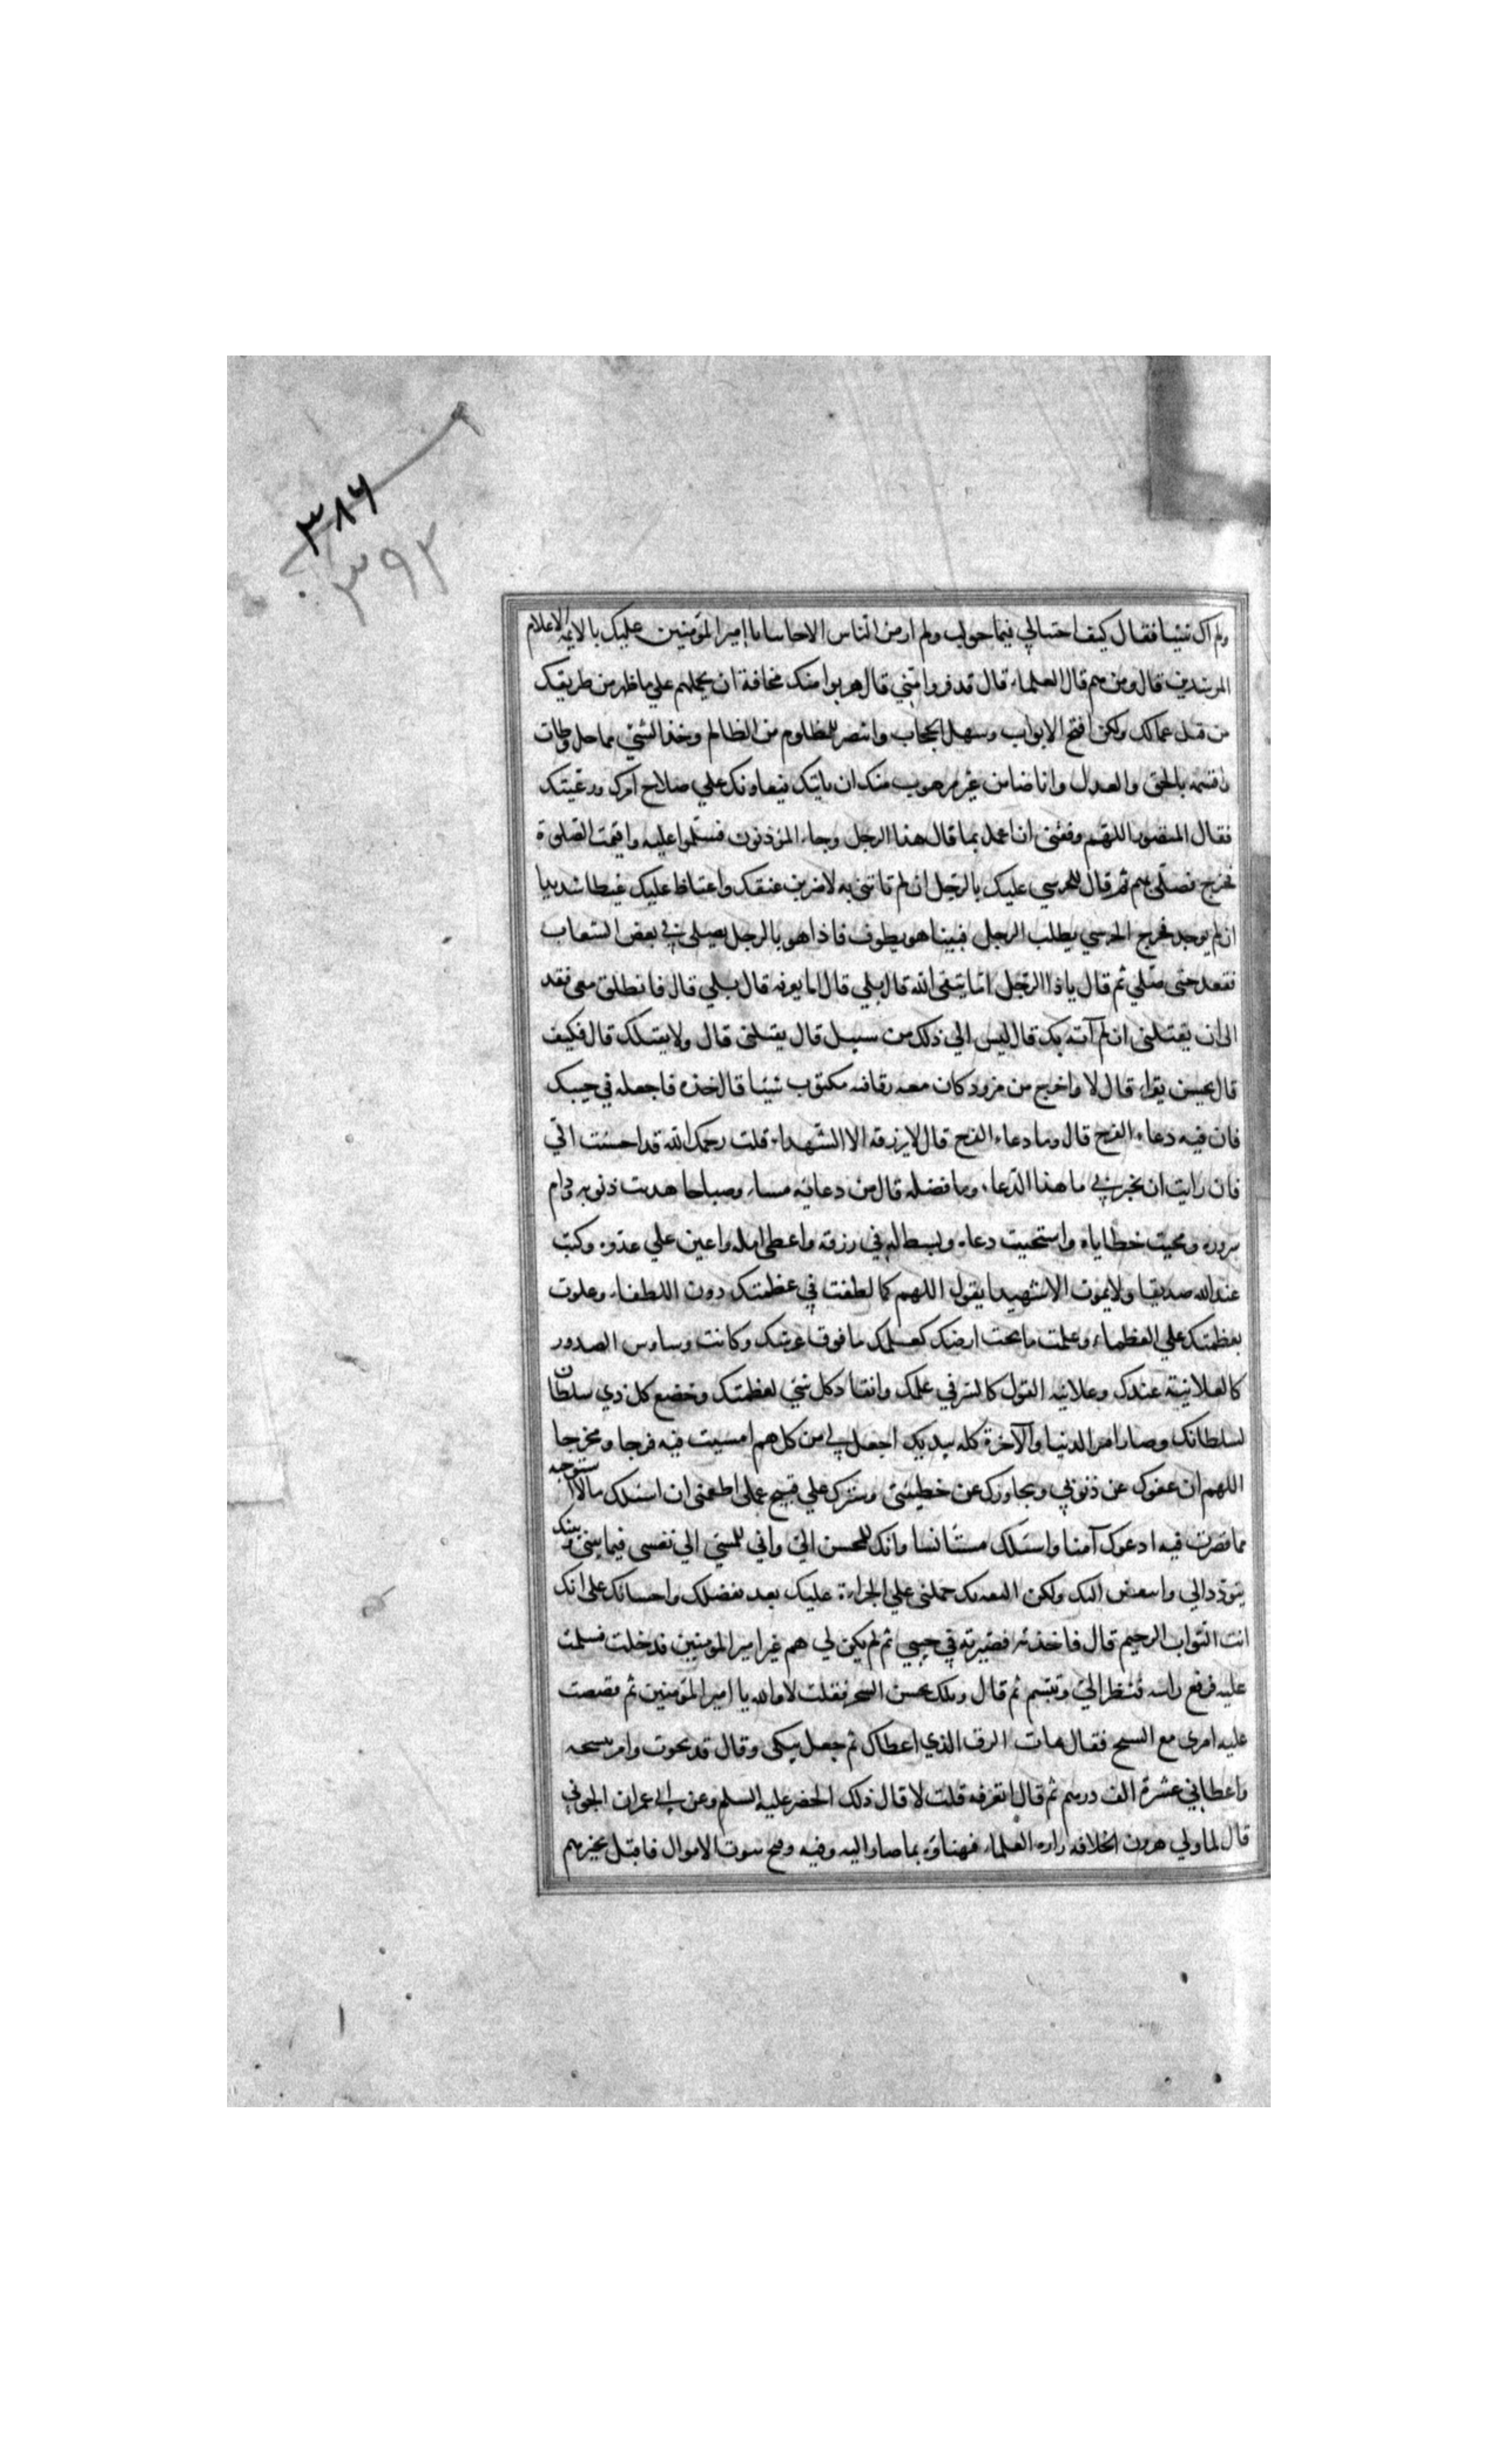 ٣٨٦
٣٩٢
ولم اك شيئا فقال كيف احتيالي فيما حولت ولم ار من الناس الاخاسا يا امير المؤمنين عليك بالايمة الاعلام
المرشدين قال ومن هم قال العلماء قال قد فروا مني قال هربوا منك مخافة ان يحملهم علي ما ظهر من طريقك
من قبل عمالك ولكن افتح الابواب وسهل الحجاب وانتصر للمظلوم من الظالم وخذ الشي مما حل وطاب
واقسمه بالحق والعدل وانا ضامن عن من هرب منك ان ياتيك فيعاونك علي صلاح امرك ورعيتك
فقال المنصور اللهم وفقني ان اعمل بما قال هذا الرجل وجاء المؤذنون فسلموا عليه واقيمت الصلوة
فخرج فصلي بهم ثم قال للحرسي عليك بالرجل ان لم تاتني به لاضربن عنقك واغتاظ عليك غيظا شديدا
ان لم يوجد فخرج الحرسي يطلب الرجل فبينا هو يطوف فاذا هو بالرجل يصلي في بعض الشعاب
فقعد حتي صلي ثم قال يا ذا الرجل اما تتقي الله قال بلي قال اما تعرفه قال بلي قال فانطلق معي فقد
الي ان يقتلني ان لم آته بك قال ليس الي ذلك من سبيل قال يقتلني قال ولا يقتلك قال فكيف
قال تحسن تقراء قال لا واخرج من مزود كان معه رقا فيه مكتوب شيئا قال خذه فاجعله في جيبك
فان فيه دعاء الفرح قال وما دعاء الفرح قال لا يرزقه الا الشهداء قلت رحمك الله قد احسنت الي
فان رايت ان تخبرني ما هذا الدعاء وما فضله قال من دعا به مساء وصباحا هدمت ذنوبه ودام
سروره ومحيت خطاياه واستجيب دعاءه وبسط له في رزقه واعطي امله واعين علي عدوه وكتب
عند الله صديقا ولا يموت الا شهيدا يقول اللهم كما لطفت في عظمتك دون اللطفاء وعلوت
بعظمتك علي العظماء وعلمت ما تحت ارضك كعلمك ما فوق عرشك وكانت وساوس الصدور
كالعلانية عندك وعلانية القول كالسر في علمك وانقاد كل شي لعظمتك وخضع كل ذي سلطان
لسلطانك وصار امر الدنيا والآخرة كله بيديك اجعل لي من كل هم امسيت فيه فرجا ومخرجا
اللهم ان عفوك عن ذنوبي وتجاوزك عن خطيئتي وسترك علي قبيح عملي اطمعني ان اسئلك ما لا استوجبه
مما قصرت فيه ادعوك آمنا واسئلك مستانسا وانك المحسن الي واني للمسي الي نفسي فيما بيني وبينك
تتودد الي واتبغض اليك ولكن الثقة بك حملني علي الجراءة عليك بعد بفضلك واحسانك علي انك
انت التواب الرحيم قال فاخذته فصيرته في جيبي ثم لم يكن لي هم غير امير المؤمنين فدخلت فسلمت
عليه فرفع راسه فنظر الي وتبسم ثم قال ويلك تحسن السحر فقلت لا والله يا امير المؤمنين ثم قصصت
عليه امري مع الشيخ فقال هات الرق الذي اعطاك ثم جعل يبكي وقال قد نجوت وامر بنسخه
واعطاني عشرة الف درهم ثم قال اتعرفه قلت لا قال ذلك الخضر عليه السلم وعن ابي عمران الجوني
قال لما ولي هرون الخلافة زاره العلماء فهناوه بما صار اليه وفيه وفتح بيوت الاموال فاقبل يجيزهم